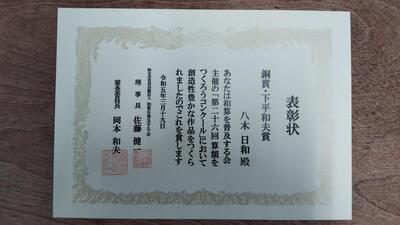 表彰状
銅賞・下平和夫賞
八木 日和 殿
あなたは和算を普及する会
主催の「第二十六回算額を
つくろうコンクール」において
創造性豊かな作品をつくら
れましたのでこれを賞します
令和五年三月十九日
理事長 佐藤 健一
審査委員長 岡本 和夫